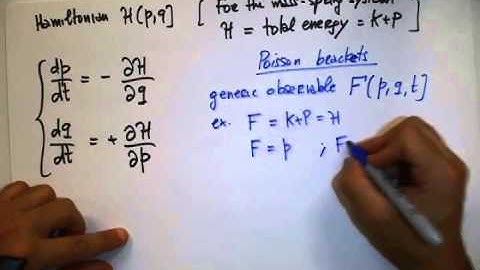 Hamiltonian H(p,q] [ for the mass-spring system
H = total energy = K+P ]
dp/dt = - ∂H/∂q
dq/dt = + ∂H/∂p
Poisson brackets
generic observable F(p,q,t]
ex. F = K+P = H
F = p ; F